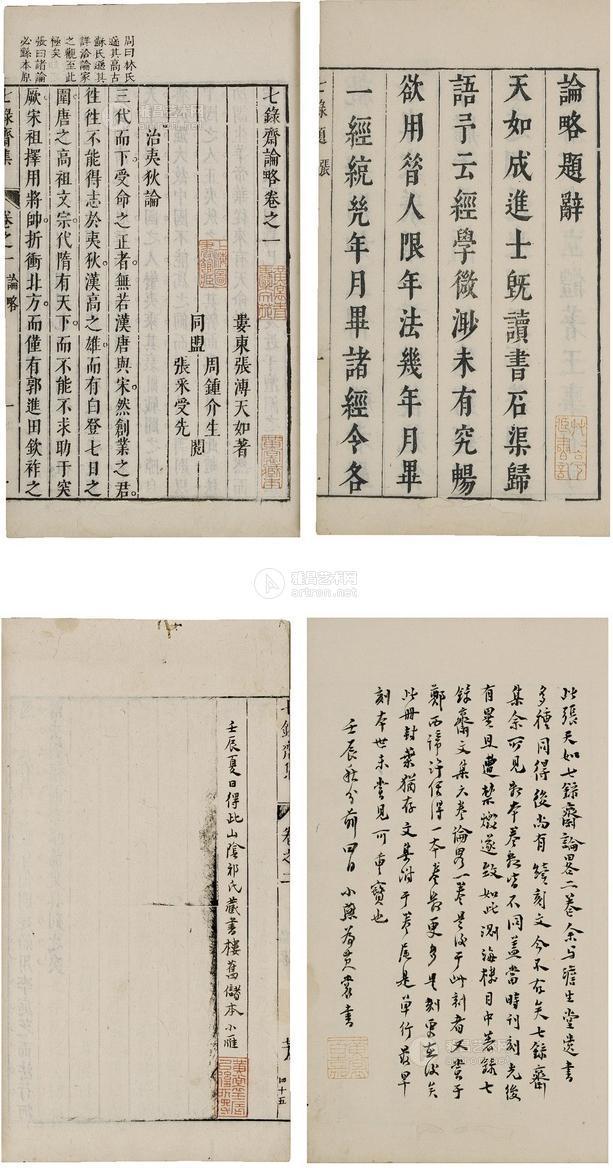 論略題辭
天如成進士既讀書石渠歸
語予云經學微渺未有究暢
欲用昝人限年法幾年月畢
一經統幾年月畢諸經今各
七錄題張
周曰林氏
遜其高古
蘇氏遜其
詳洽論家
之觀至此
極矣
張曰諸論
必蘇本原
七錄齋論略卷之一
婁東張溥天如著
同盟
周鍾介生
張采受先
閱
治夷狄論
三代而下受命之正者無若漢唐與宋然創業之君
徃徃不能得志於夷狄漢高之雄而有白登七日之
圍唐之高祖文宗代隋有天下而不能不求助于突
厥宋祖擇用將帥折衝北方而僅有郭進田欽祚之
七錄齋集
卷之一
論略
一
此張天如七錄齋論畧二卷余与澹生堂遺書
多種同得後尚有續刻文今不存矣七錄齋
集余可見刻本卷數皆不同蓋當時刊刻先後
有異且遭禁燬遂致如此測海樓目中著錄七
錄齋文集六卷論畧一卷是後于此刻者又嘗于
鄭西諦許借得一本卷數更多是刻更在後矣
此册封葉猶存文集附于卷尾是單行最早
刻本世未嘗見可寶也
壬辰秋分前四日小燕黃裳書
壬辰夏日得此山陰祁氏藏書樓舊儲本小雁
七錄齋集
卷之二
四十五
雅昌艺术网
artron.net